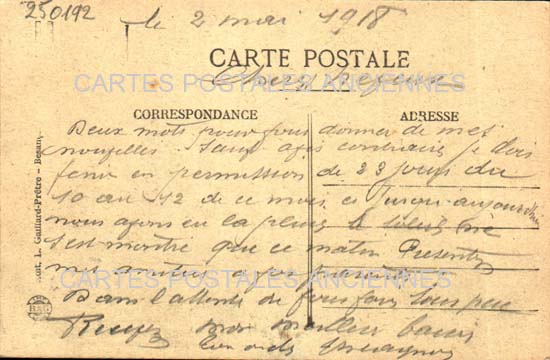 250192
le 2 mai 1918
CARTE POSTALE
Chers
CARTES POSTALES ANCIENNES
CORRESPONDANCE
ADRESSE
Deux mots pour vous donner de mes
nouvelles. Sauf avis contraire je dois
venir en permission de 23 jours du
10 au 12 de ce mois, ce jusqu'aujourd'hui
nous avons eu la pluie le soleil ne
s'est montré que ce matin Presentez
mes
CARTES POSTALES ANCIENNES
Dans l'attente de vous voir sous peu
Recevez mes meilleurs baisers
L. Gaillard-Prêtre - Besanç